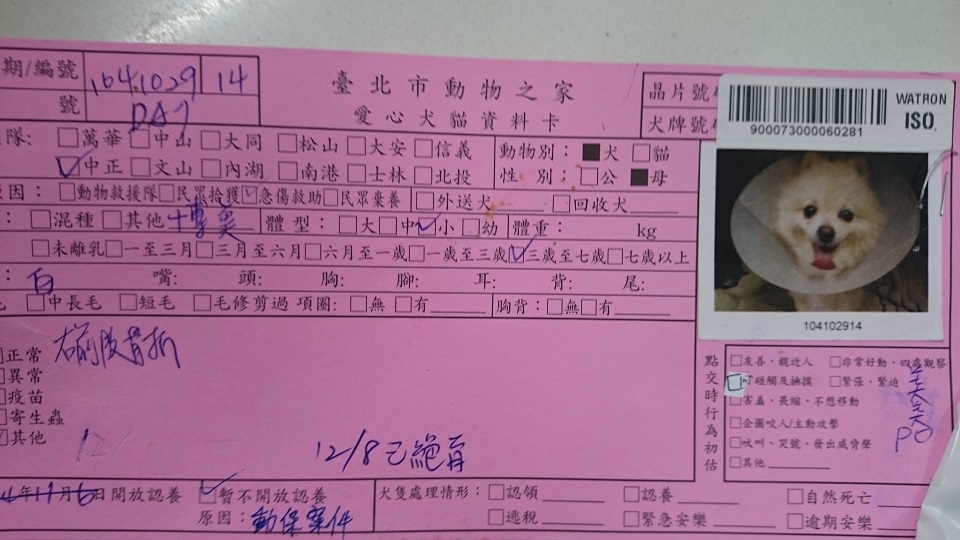 期/編號 104.10.29 14
臺北市動物之家
愛心犬貓資料卡
號
晶片號
犬牌號
WATRON
ISO.
900073000060281
隊: □萬華 □中山 □大同 □松山 □大安 □信義
☑中正 □文山 □內湖 □南港 □士林 □北投
動物別: ■犬 □貓
性別: □公 ■母
因: □動物救援隊 □民眾拾獲 ☑急傷救助 □民眾棄養 □外送犬 □回收犬
: □混種 □其他 體型: □大 □中 ☑小 □幼 體重: kg
□未離乳 □一至三月 □三月至六月 □六月至一歲 □一歲至三歲 ☑三歲至七歲 □七歲以上
: 白 嘴: 頭: 胸: 腳: 耳: 背: 尾:
□中長毛 □短毛 □毛修剪過 項圈: □無 □有 胸背: □無 □有
104102914
□正常 右前肢骨折
□異常
□疫苗
□寄生蟲
其他
12/8已絕育
點交時行為初估
□友善、親近人 □非常好動、四處觀察
可碰觸及撫摸 □緊張、緊迫
□害羞、畏縮、不想移動
□企圖咬人/主動攻擊
□吠叫、哭號、發出威脅聲
□其他
年11月6日開放認養 ☑暫不開放認養
原因: 動保案件
犬隻處理情形: □認領 □認養 □自然死亡
□逃脫 □緊急安樂 □逾期安樂